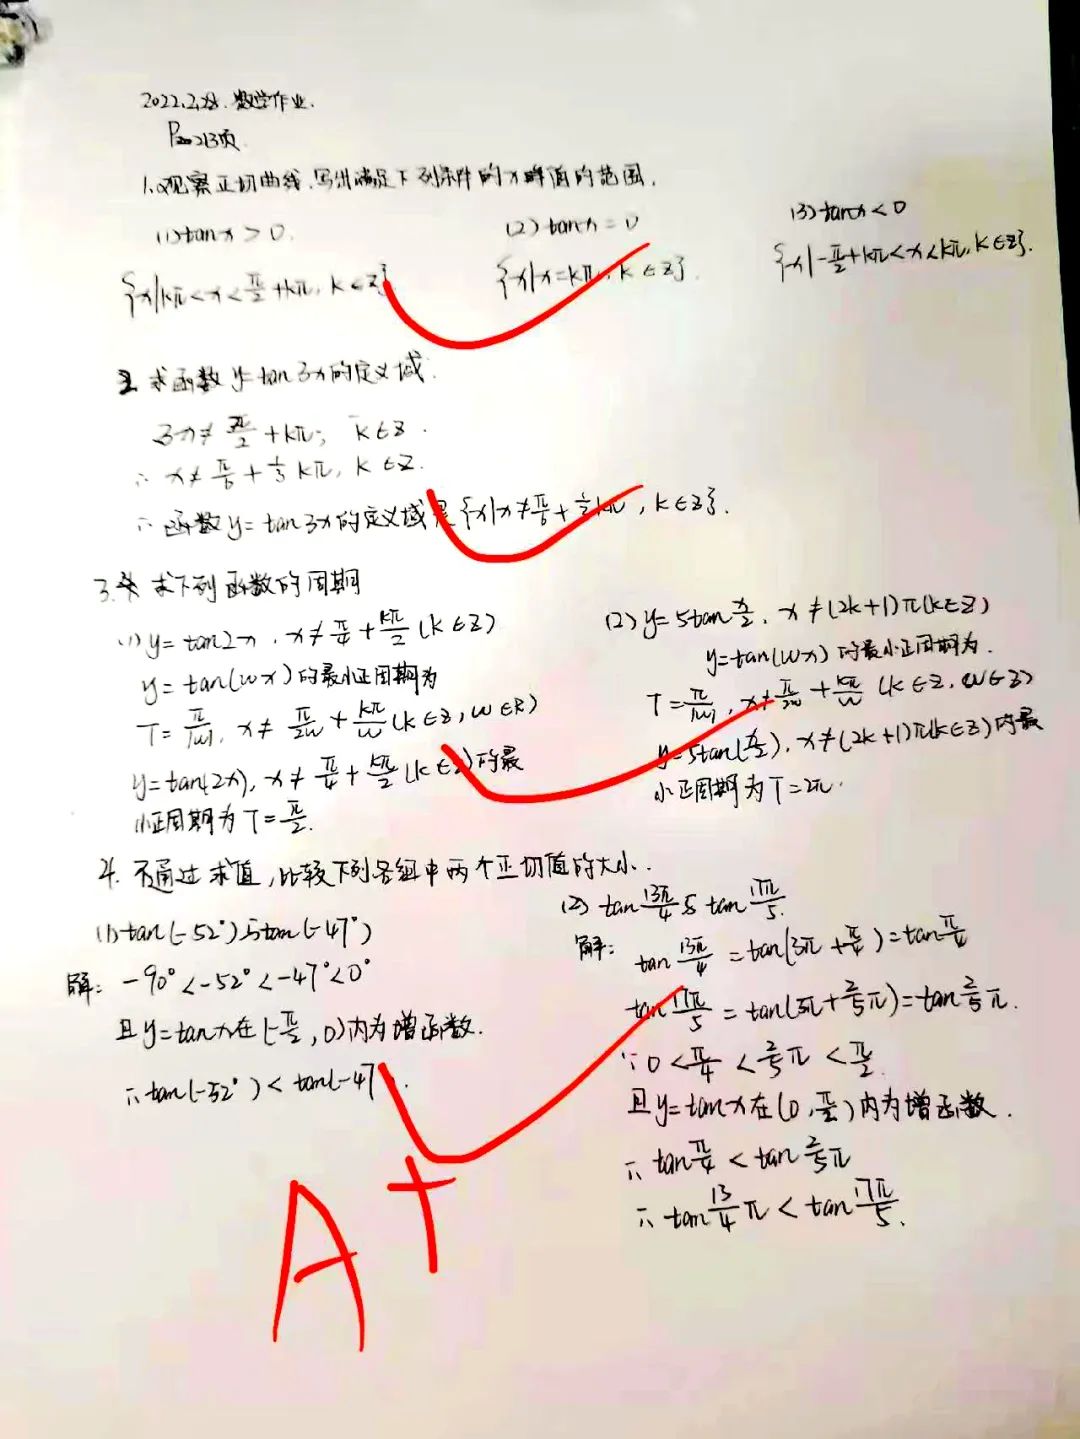 2022.2.28. 数学作业.
P 213页
1. 观察正切曲线,写出满足下列条件的x 值的范围.
(1) tan x > 0. (2) tan x = 0 (3) tan x < 0
{x|kπ < x < π/2 + kπ, k ∈ Z} {x|x = kπ, k ∈ Z}. {x|-π/2 + kπ < x < kπ, k ∈ Z}.
2. 求函数 y = tan 3x 的定义域.
3x ≠ π/2 + kπ, k ∈ Z.
∴ x ≠ π/6 + 1/3 kπ, k ∈ Z.
∴ 函数 y = tan 3x 的定义域是 {x|x ≠ π/6 + kπ, k ∈ Z}.
3. 求下列函数的周期
(1) y = tan 2x, x ≠ π/4 + kπ/2 (k ∈ Z)
y = tan(wx) 的最小正周期为
T = π/|w|, x ≠ π/2w + kπ/w (k ∈ Z, w ∈ R)
y = tan(2x), x ≠ π/4 + kπ/2 (k ∈ Z) 的最
小正周期为 T = π/2.
(2) y = 5tan x/2, x ≠ (2k+1)π (k ∈ Z)
y = tan(wx) 的最小正周期为.
T = π/|w|, x ≠ π/2w + kπ/w (k ∈ Z, w ∈ Z)
y = 5tan(x/2), x ≠ (2k+1)π (k ∈ Z) 的最
小正周期为 T = 2π.
4. 不通过求值,比较下列各组中两个正切值的大小.
(1) tan(-52°) 与 tan(-47°)
解: -90° < -52° < -47° < 0°
且 y = tan x 在 (-π/2, 0) 内为增函数.
∴ tan(-52°) < tan(-47
(2) tan 13π/4 与 tan 17π/5.
解: tan 13π/4 = tan(3π + π/4) = tan π/4
tan 17π/5 = tan(3π + 2/5 π) = tan 2/5 π.
∵ 0 < π/4 < 2/5 π < π/2.
且 y = tan x 在 (0, π/2) 内为增函数.
∴ tan π/4 < tan 2/5 π
∴ tan 13/4 π < tan 17π/5.
A+